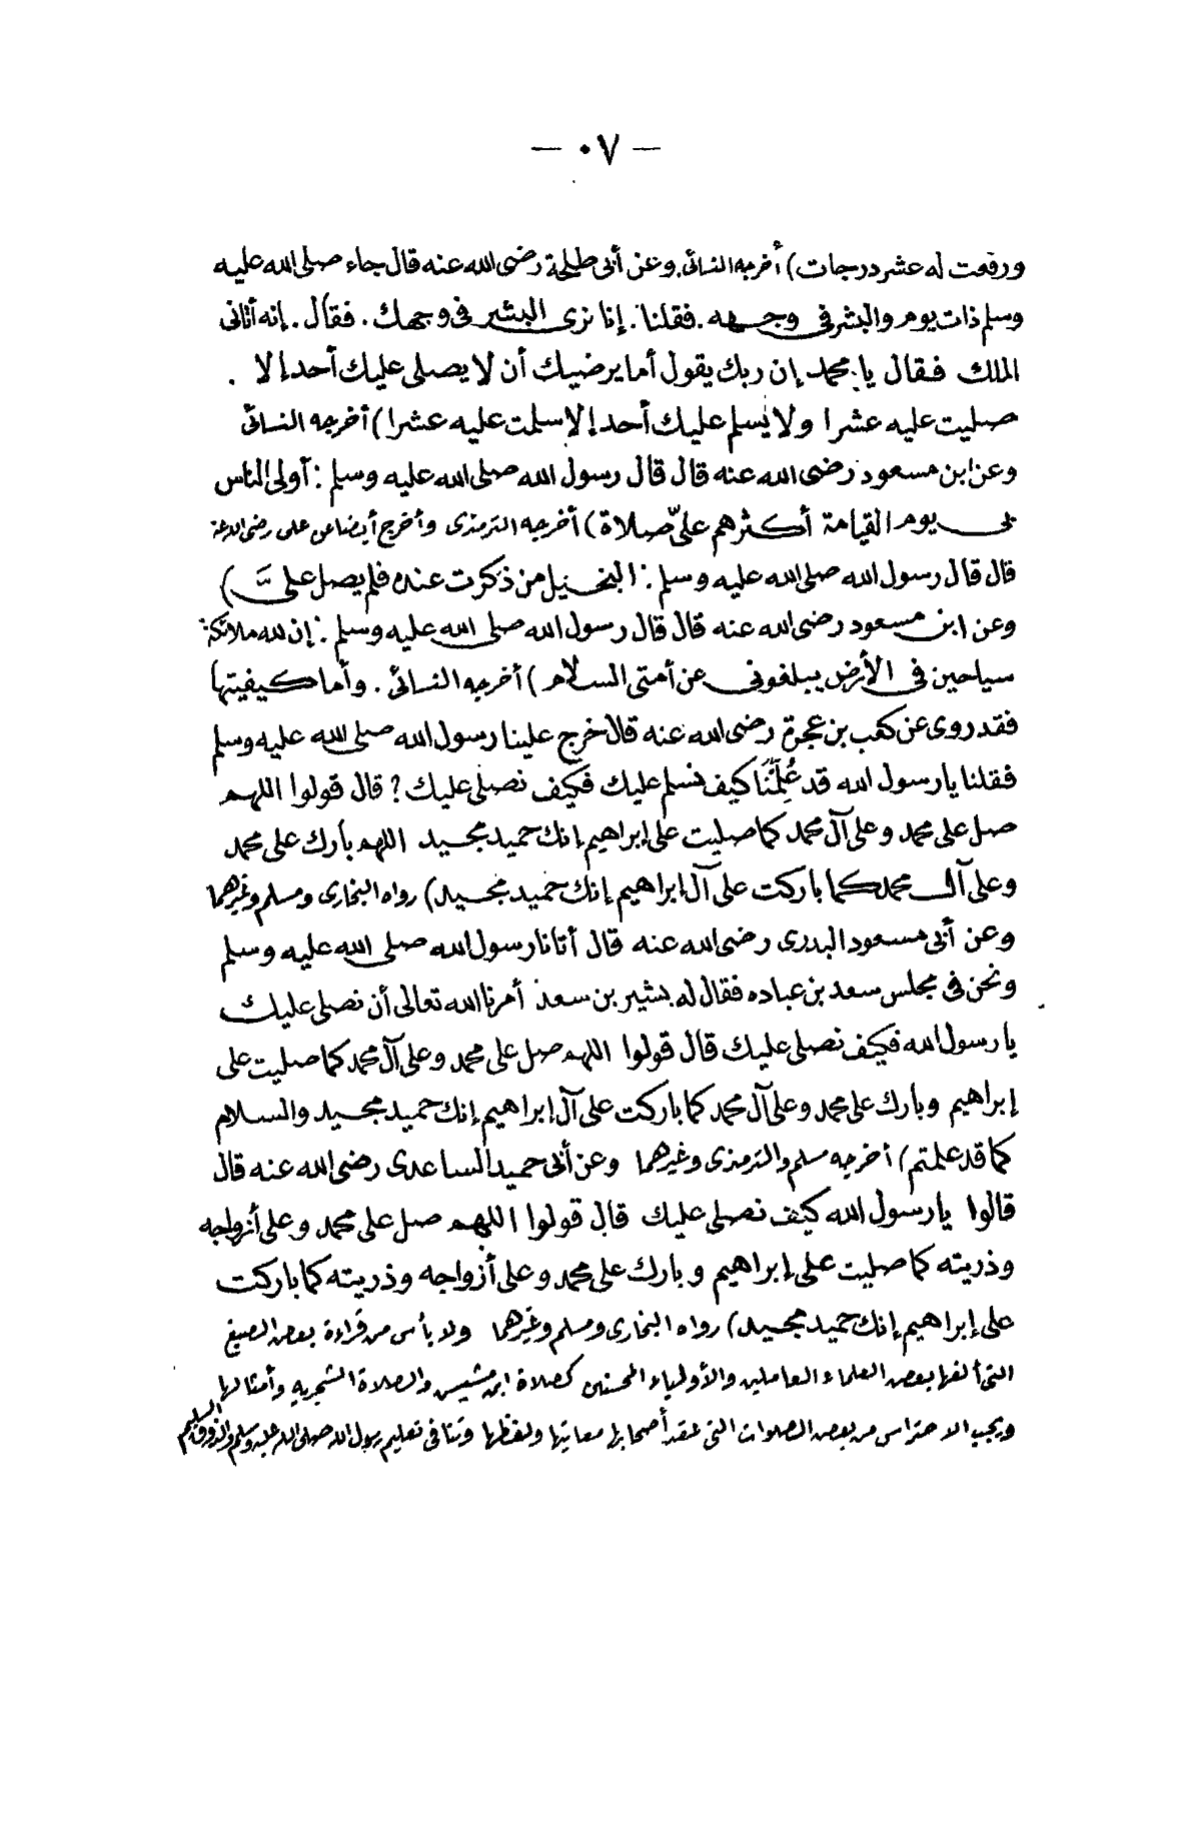 — ٠٧ —
ورفعت له عشر درجات) أخرجه النسائى. وعن أبى طلحة رضى الله عنه قال جاء صلى الله عليه
وسلم ذات يوم والبشر فى وجهه. فقلنا. إنا نرى البشر فى وجهك. فقال. إنه أتانى
الملك فقال يا محمد إن ربك يقول أما يرضيك أن لا يصلى عليك أحد إلا .
صليت عليه عشرا ولا يسلم عليك أحد إلا سلمت عليه عشرا) أخرجه النسائى
وعن ابن مسعود رضى الله عنه قال قال رسول الله صلى الله عليه وسلم : أولى الناس
بى يوم القيامة أكثرهم علىّ صلاة) أخرجه الترمذى وأخرج أيضا عن على رضى الله عنه
قال قال رسول الله صلى الله عليه وسلم : البخيل من ذكرت عنده فلم يصل علىّ)
وعن ابن مسعود رضى الله عنه قال قال رسول الله صلى الله عليه وسلم : إن لله ملائكة
سياحين فى الأرض يبلغونى عن أمتى السلام) أخرجه النسائى . وأما كيفيتها
فقد روى عن كعب بن عجرة رضى الله عنه قال خرج علينا رسول الله صلى الله عليه وسلم
فقلنا يا رسول الله قد عُلِّمْنَا كيف نسلم عليك فكيف نصلى عليك؟ قال قولوا اللهم
صل على محمد وعلى آل محمد كما صليت على إبراهيم إنك حميد مجيد اللهم بارك على محمد
وعلى آل محمد كما باركت على آل إبراهيم إنك حميد مجيد) رواه البخارى ومسلم وغيرهما
وعن أبى مسعود البدرى رضى الله عنه قال أتانا رسول الله صلى الله عليه وسلم
ونحن فى مجلس سعد بن عباده فقال له بشير بن سعد أمرنا الله تعالى أن نصلى عليك
يا رسول الله فكيف نصلى عليك قال قولوا اللهم صل على محمد وعلى آل محمد كما صليت على
إبراهيم وبارك على محمد وعلى آل محمد كما باركت على آل إبراهيم إنك حميد مجيد والسلام
كما قد علمتم) أخرجه مسلم والترمذى وغيرهما وعن أبى حميد الساعدى رضى الله عنه قال
قالوا يا رسول الله كيف نصلى عليك قال قولوا اللهم صل على محمد وعلى أزواجه
وذريته كما صليت على إبراهيم وبارك على محمد وعلى أزواجه وذريته كما باركت
على إبراهيم إنك حميد مجيد) رواه البخارى ومسلم وغيرهما ولا بأس من قراءة بعض الصيغ
التى ألفها بعض العلماء العاملين والأولياء المحسنين كصلاة ابن مشيش والصلاة الشجريه وأمثالها
ويجب الاحتراس من بعض الصلوات التى عقد أصحابها معانيها ولفظها وتنافى تعليم رسول الله صلى الله عليه وسلم والذوق السليم